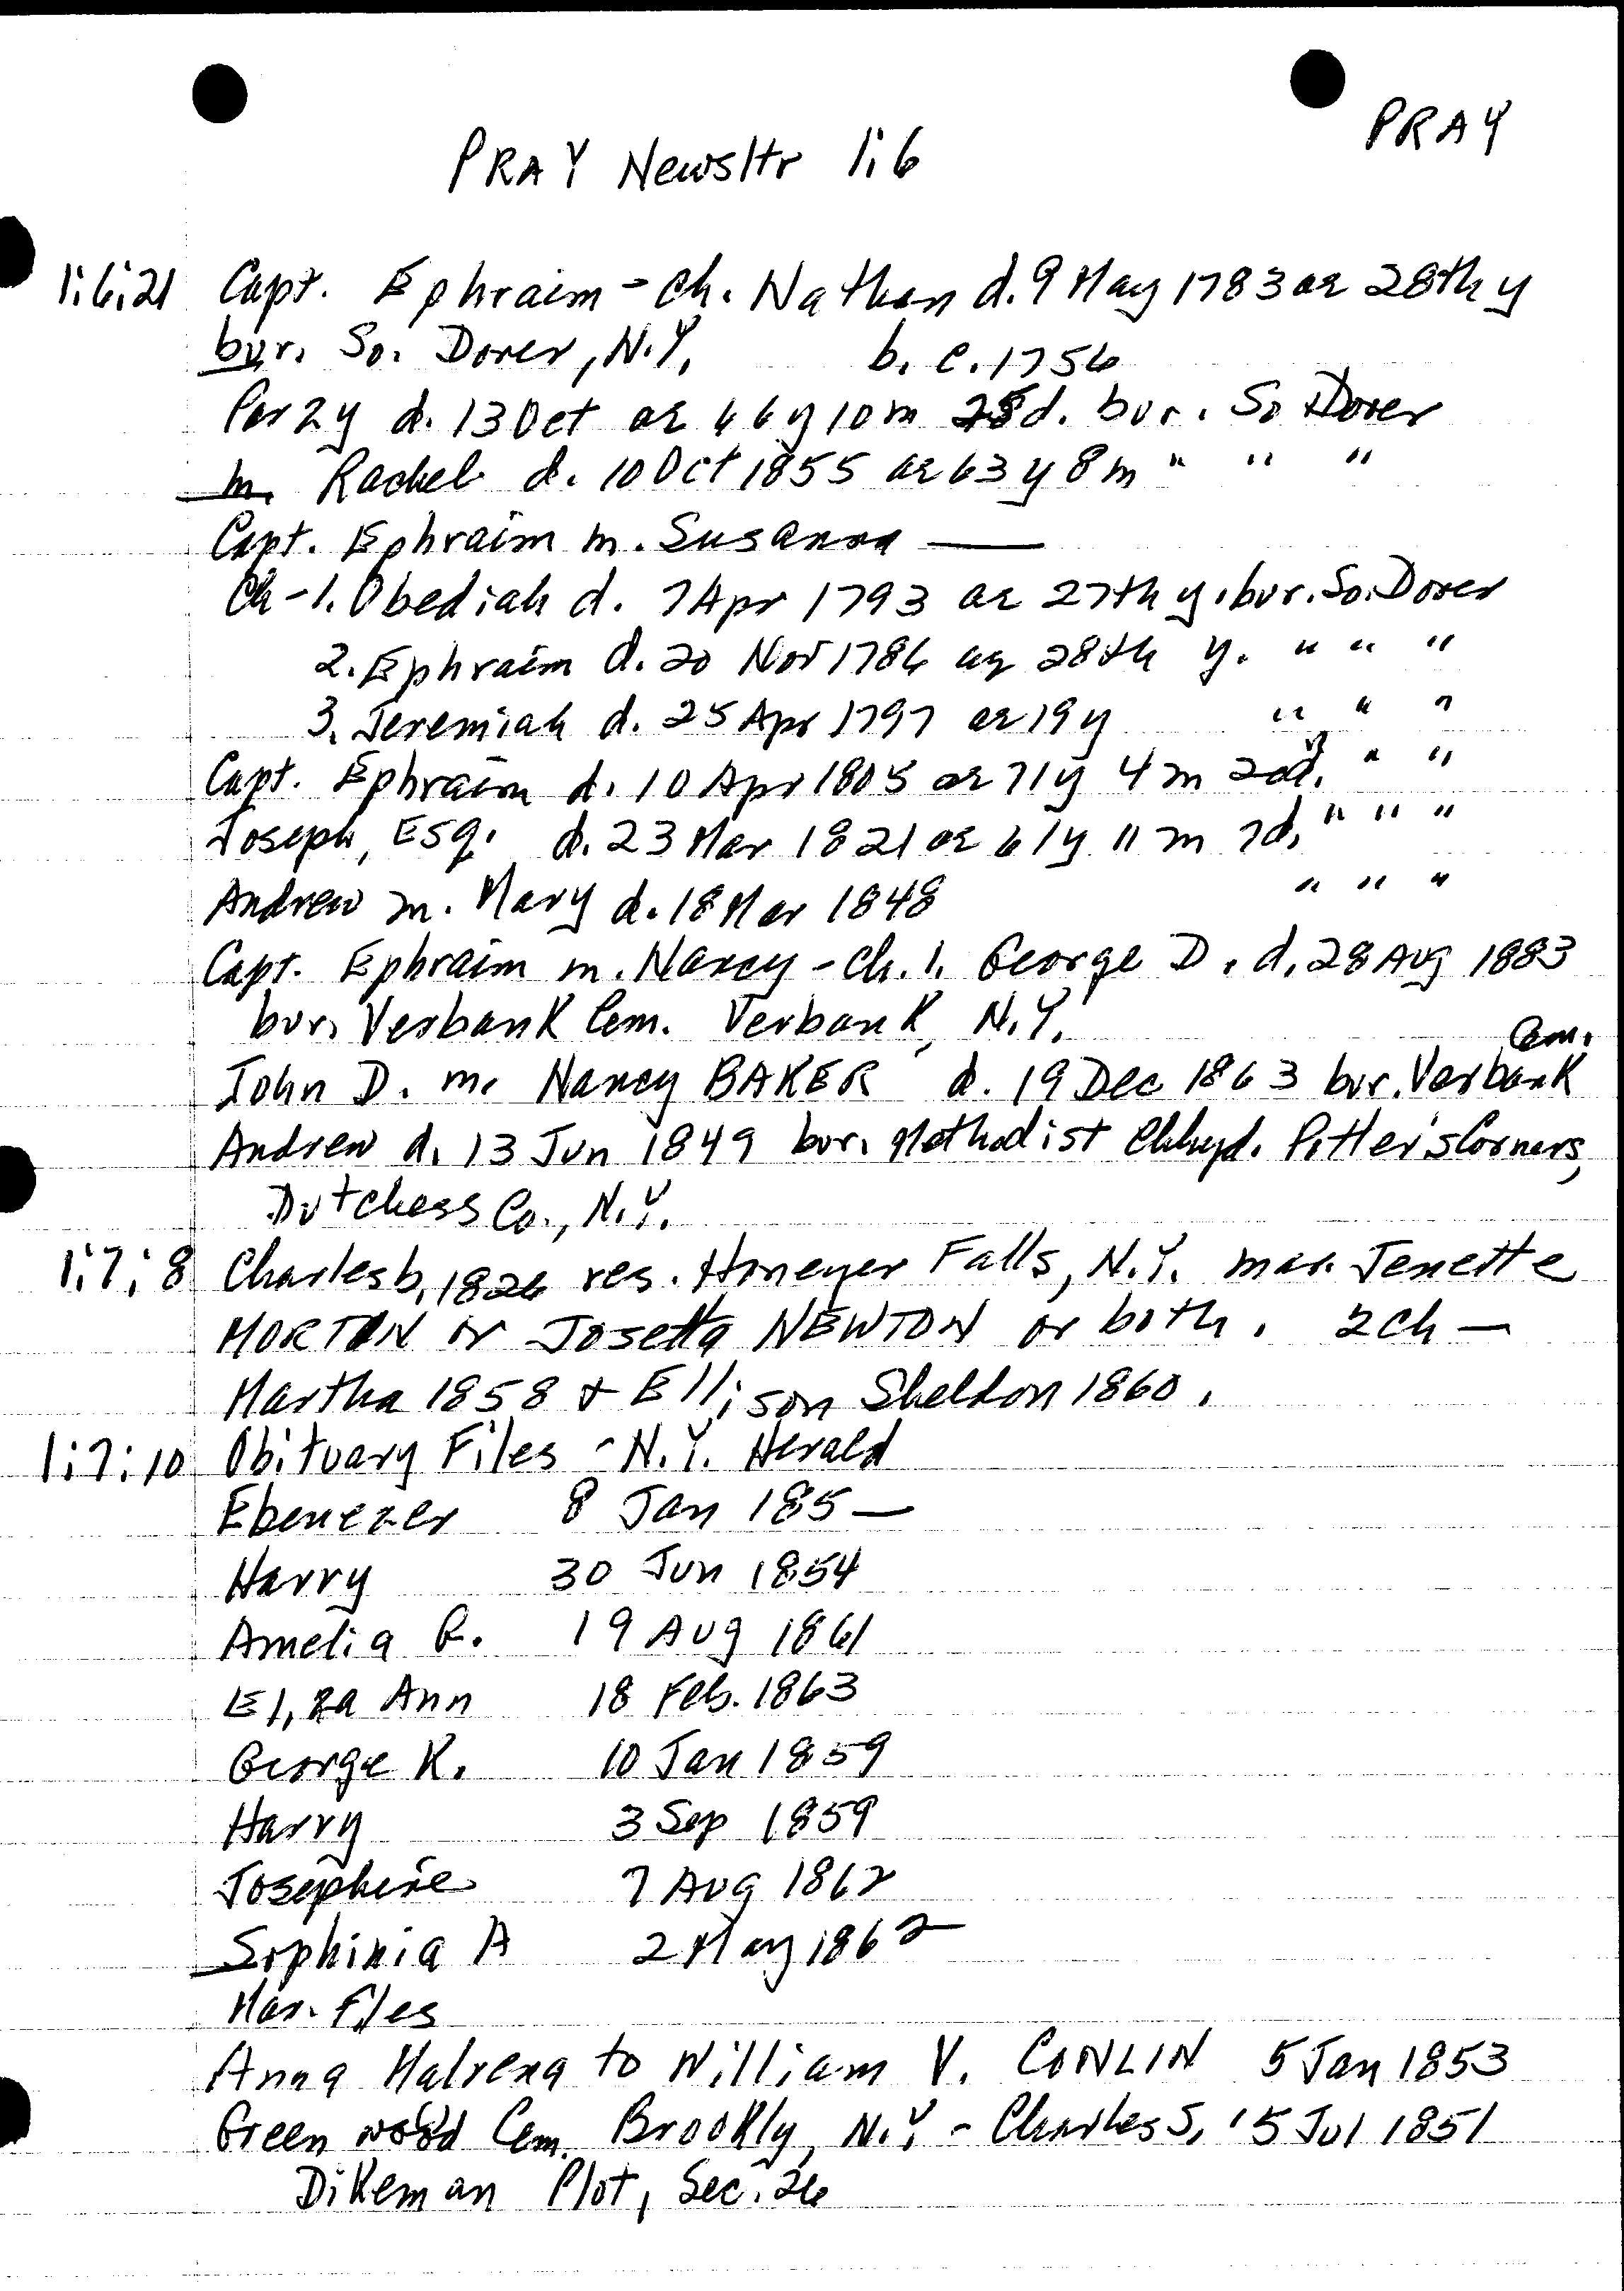 PRAY
PRAY Newsltr 1:6
1:6:21 Capt. Ephraim - Ch. Nathan d. 9 May 1783 ae 28th y
bur. So. Dover, N.Y. b. c. 1756
Perzy d. 13 Oct ae 66y 10m 28d. bur. So Dover
m. Rachel d. 10 Oct 1855 ae 63y 8m " " "
Capt. Ephraim m. Susanna —
Ch - 1. Obediah d. 7 Apr 1793 ae 27th y. bur. So. Dover
2. Ephraim d. 20 Nov 1786 ae 28th y. " " "
3. Jeremiah d. 25 Apr 1797 ae 19y " " "
Capt. Ephraim d. 10 Apr 1805 ae 71y 4m 20d. " " "
Joseph, Esq. d. 23 Mar 1821 ae 61y 11m 7d. " " "
Andrew m. Mary d. 18 Mar 1848 " " "
Capt. Ephraim m. Nancy - Ch. 1. George D. d. 28 Aug 1883
bur. Verbank Cem. Verbank, N.Y.
John D. m. Nancy BAKER d. 19 Dec 1863 bur. Verbank Cem.
Andrew d. 13 Jun 1849 bur. Methodist Chhyd. Potter's Corners,
Dutchess Co., N.Y.
1:7:8 Charles b. 1826 res. Honeyer Falls, N.Y. mar. Jenette
MORTON or Josetta NEWTON or both. 2 ch —
Martha 1858 & Ellison Sheldon 1860.
1:7:10 Obituary Files - N.Y. Herald
Ebenezer 8 Jan 185—
Harry 30 Jun 1854
Amelia G. 19 Aug 1861
Eliza Ann 18 Feb. 1863
George K. 10 Jan 1859
Harry 3 Sep 1859
Josephine 7 Aug 1862
Sophinia A 2 May 1862
Mar. Files
Anna Malvena to William V. CONLIN 5 Jan 1853
Green wood Cem. Brookly, N.Y. - Charles S. 15 Jul 1851
Dikeman Plot, Sec. 26